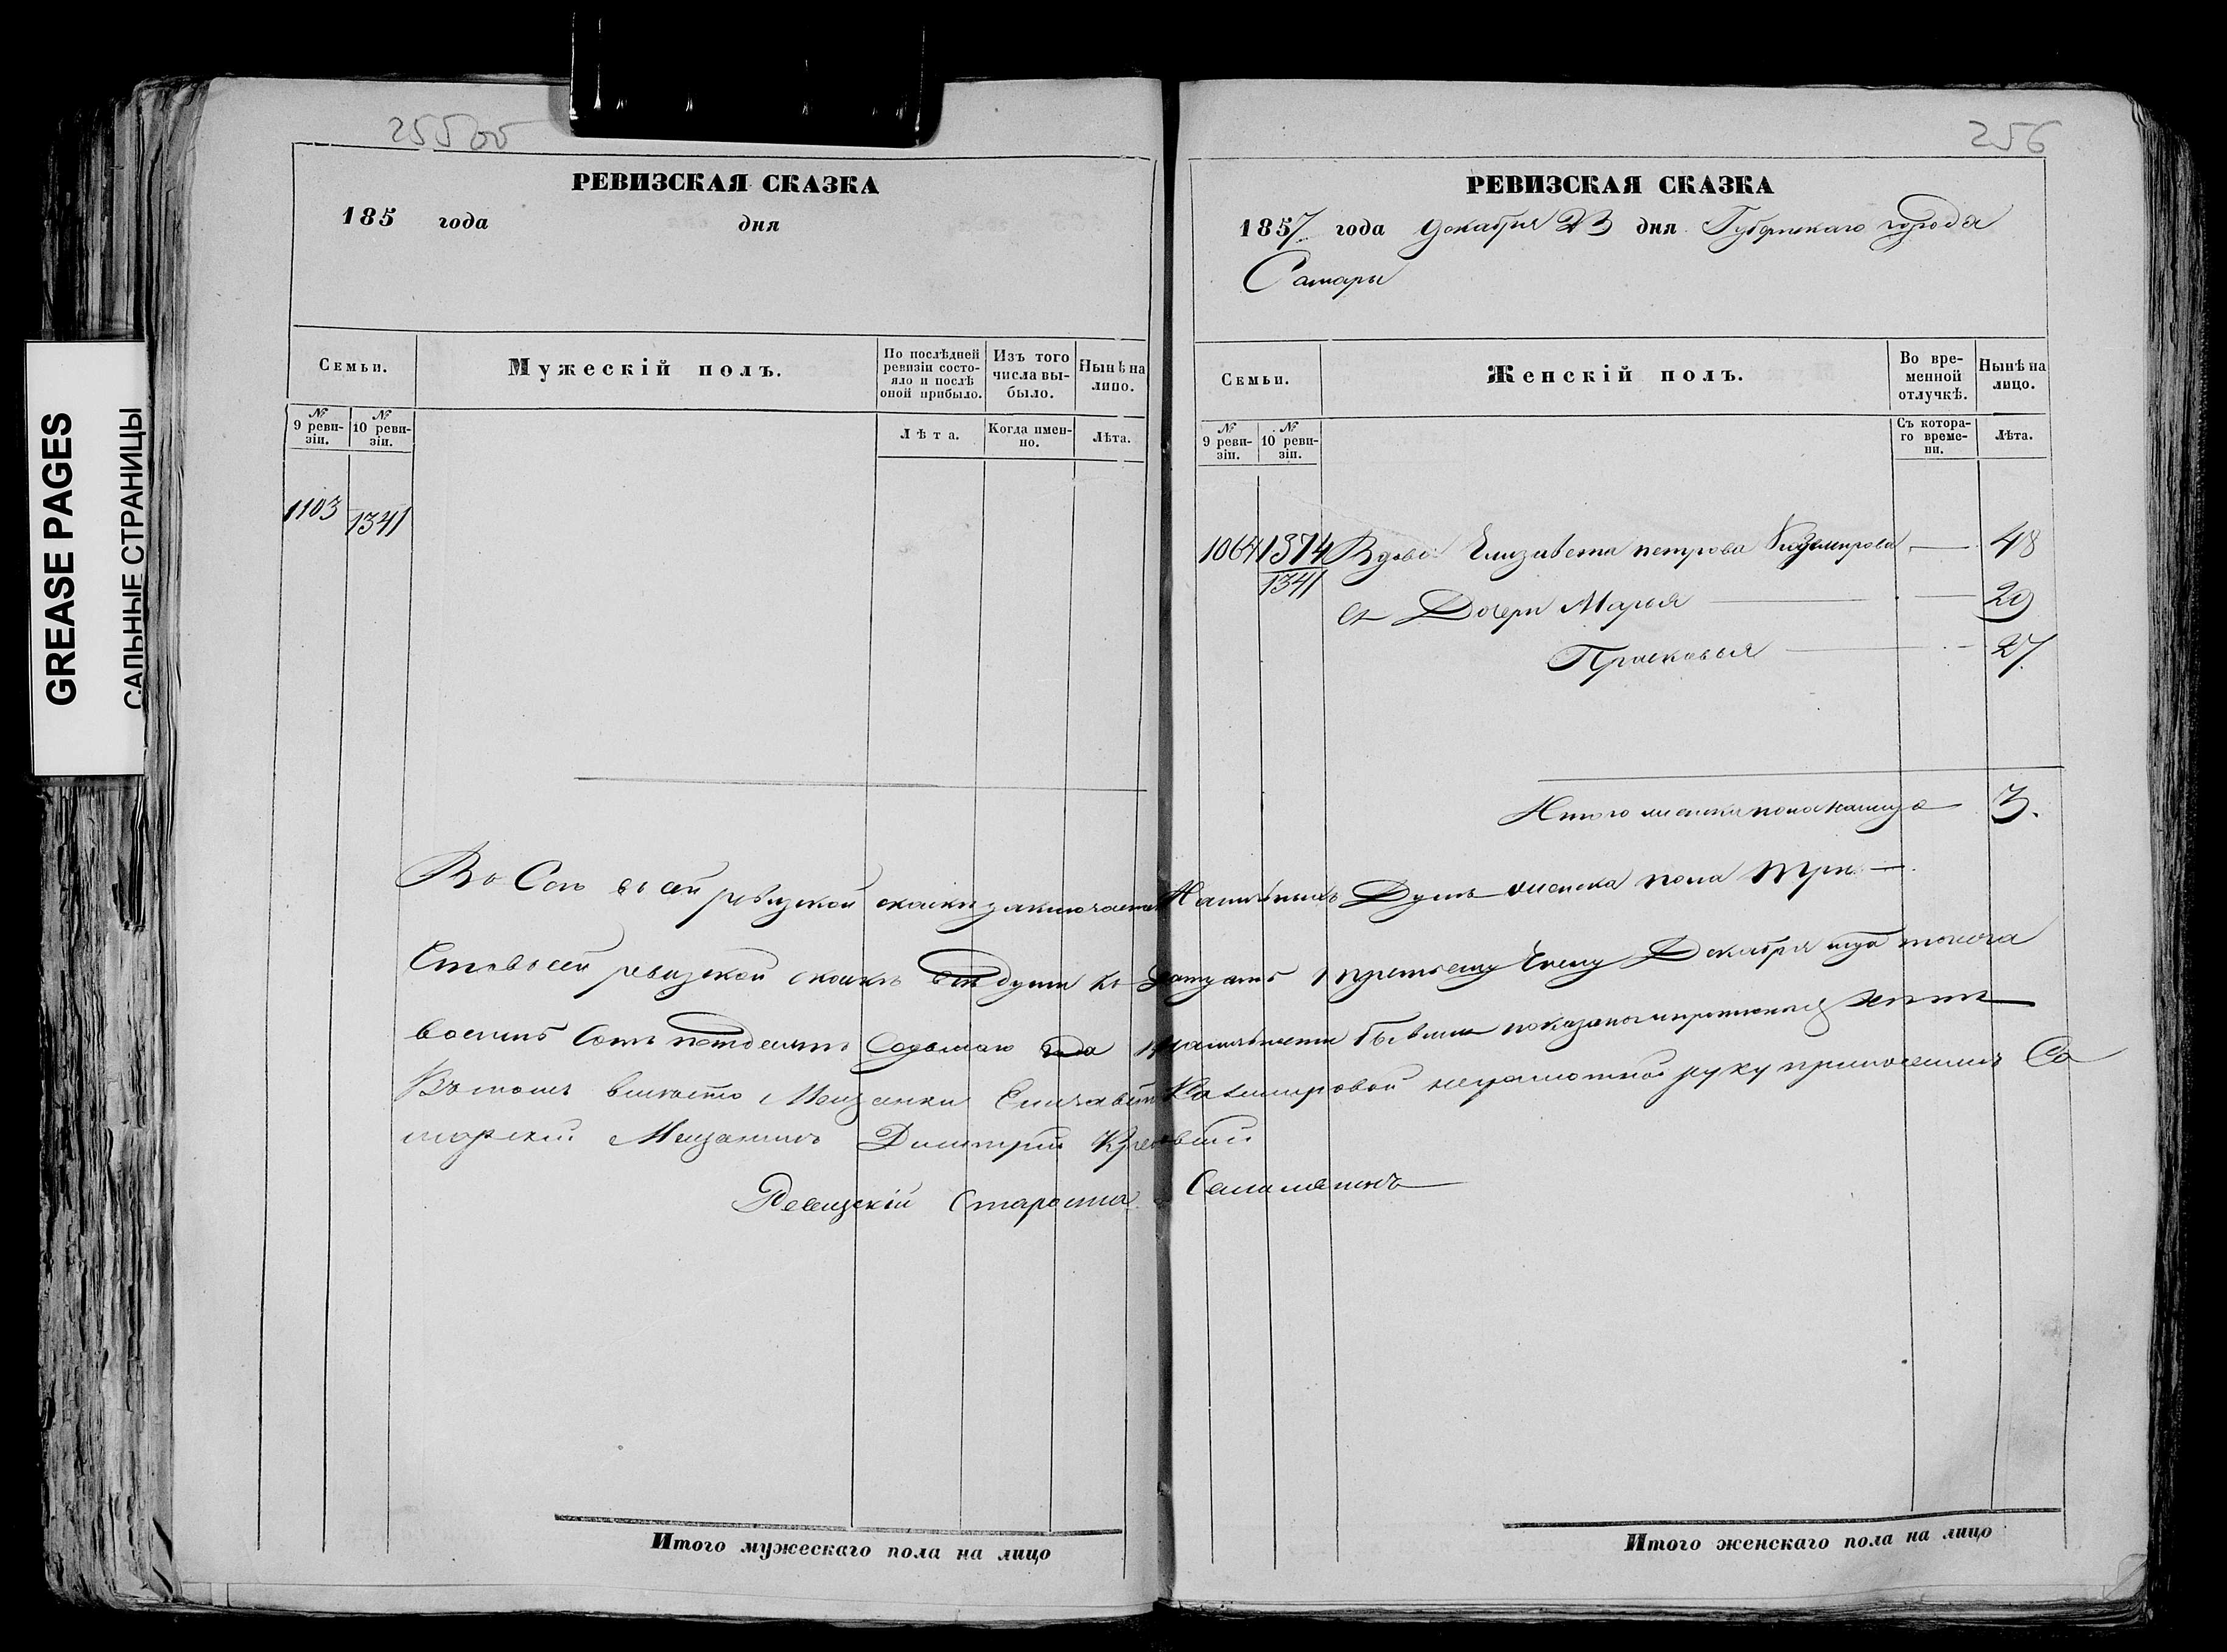 GREASE PAGES
САЛЬНЫЕ СТРАНИЦЫ
255об
РЕВИЗСКАЯ СКАЗКА
185 года дня
Семьи.
Мужескій полъ.
По послѣдней ревизіи состояло и послѣ оной прибыло.
Изъ того числа выбыло.
Нынѣ на лицо.
№ 9 ревизіи.
№ 10 ревизіи.
Лѣта.
Когда именно.
Лѣта.
1103 1341
256
РЕВИЗСКАЯ СКАЗКА
1857 года декабря 23 дня Губернскаго города
Самары
Семьи.
Женскій полъ.
Во временной отлучкѣ.
Нынѣ на лицо.
№ 9 ревизіи.
№ 10 ревизіи.
Съ котораго времени.
Лѣта.
1064 1374 Вдова Елизавета петрова Казимирова — 48
1341
Дочери Марья — 29
Прасковья — 27
Итого женска пола налицо 3.
Во всей ревизкой скаски заключается Наличныхъ Душъ женска пола три —
Что въ сей ревизкой скаскѣ всѣ души къ Двадцать третьему Числу Декабря тысяча
восемь Сотъ пятдесятъ Седьмаго года
Въ томъ вместо Мещанки Елизаветы Казимировой неграмотной руку приложилъ Са
марской Мещанинъ Димитрий
Ревизскій Староста
Итого мужескаго пола на лицо
Итого женскаго пола на лицо